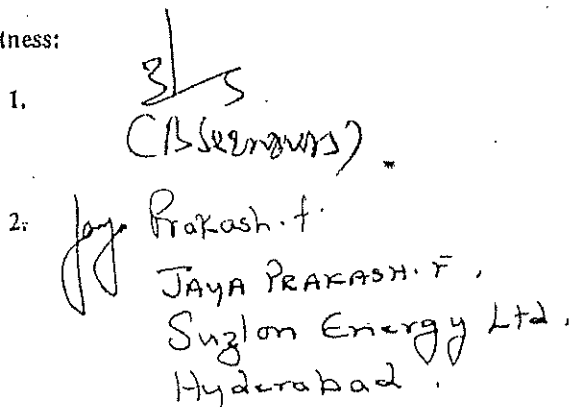 tness:
1.
2. Jaya Prakash. F.
JAYA PRAKASH. F,
Suzlon Energy Ltd,
Hyderabad.